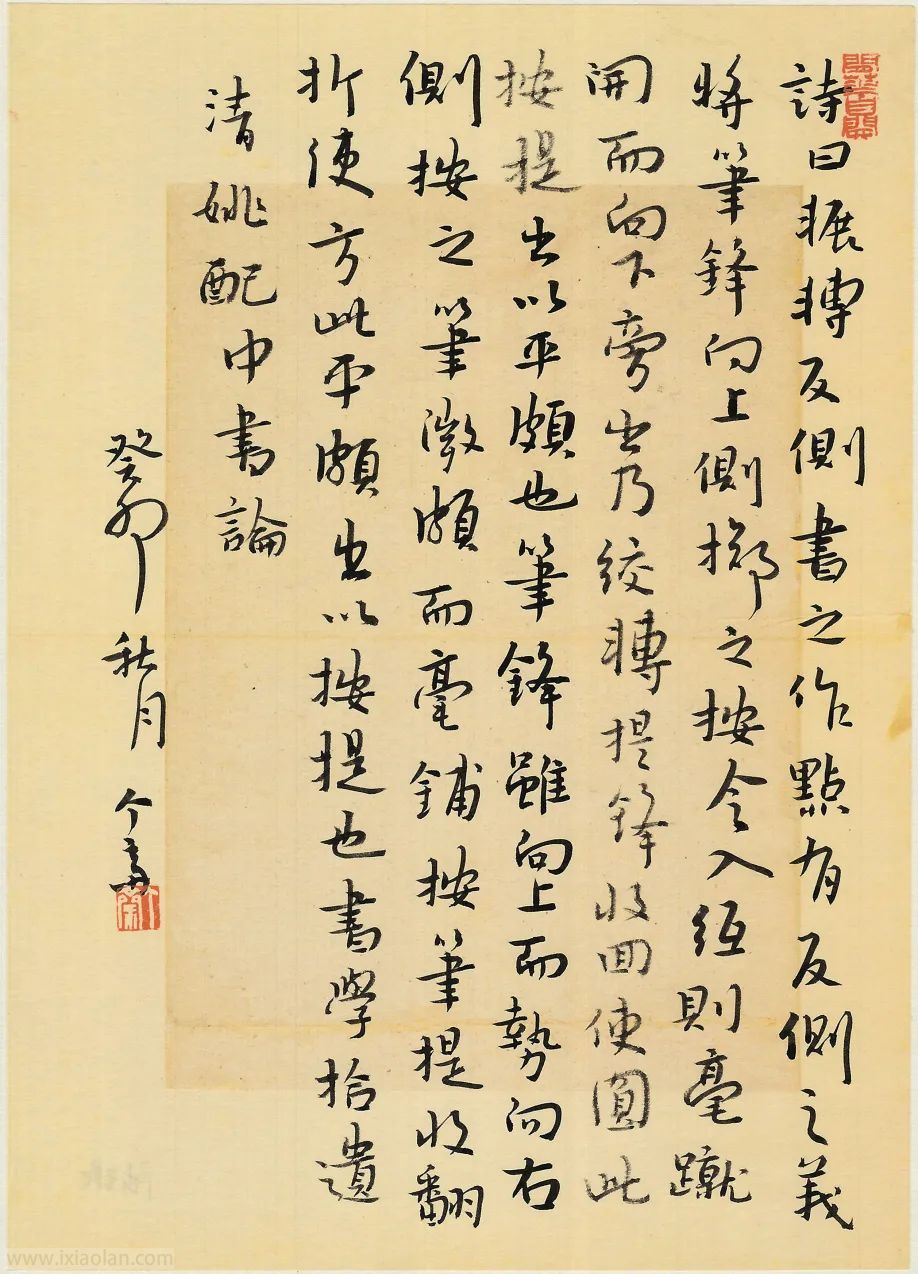 詩曰輾轉反側書之作點有反側之義
將筆鋒向上側擲之按令入紙則毫蹴
開而向下旁出乃絞轉提鋒收回使圓此
按提出以平頗也筆鋒雖向上而勢向右
側按之筆微頗而毫鋪按筆提收翻
折使方此平頗出以按提也書學拾遺
清姚配中書論
癸卯秋月个
www.ixiaolan.com